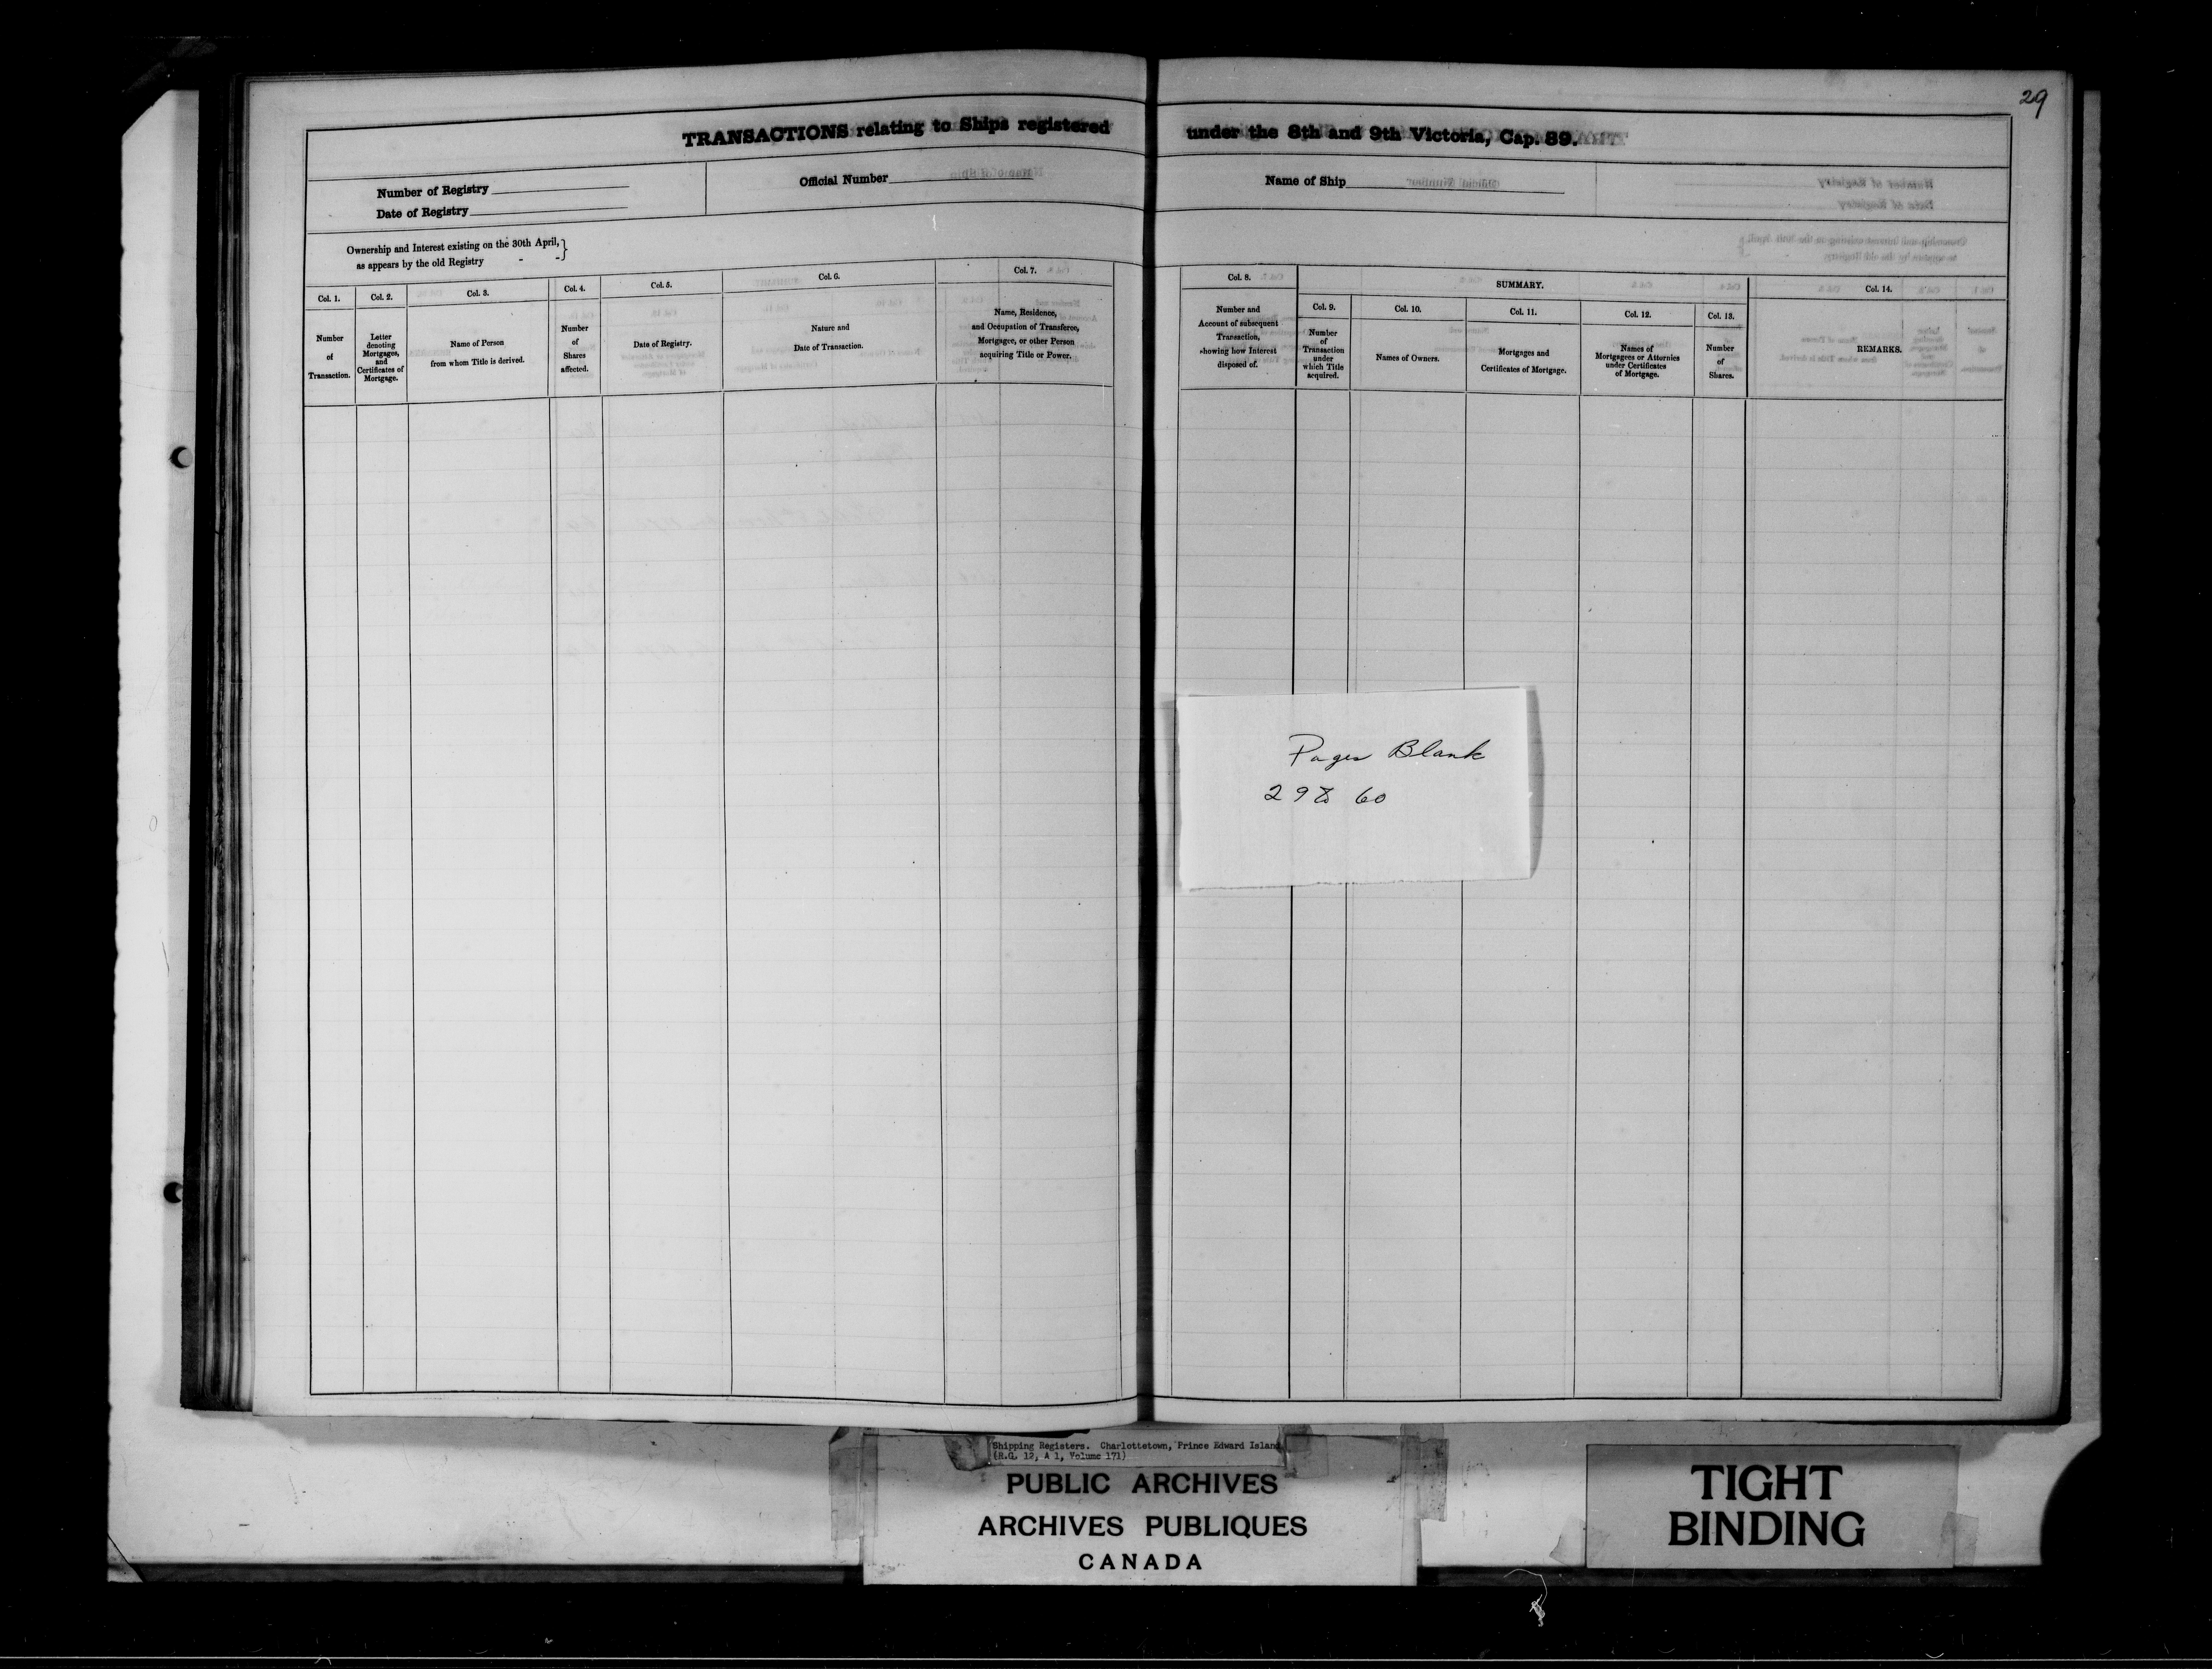 29
TRANSACTIONS relating to Ships registered under the 8th and 9th Victoria, Cap. 89.
Number of Registry
Date of Registry
Official Number
Name of Ship
Ownership and Interest existing on the 30th April,
as appears by the old Registry - - }
Col. 1.
Number
of
Transaction.
Col. 2.
Letter
denoting
Mortgages,
and
Certificates of
Mortgage.
Col. 3.
Name of Person
from whom Title is derived.
Col. 4.
Number
of
Shares
affected.
Col. 5.
Date of Registry.
Col. 6.
Nature and
Date of Transaction.
Col. 7.
Name, Residence,
and Occupation of Transferee,
Mortgagee, or other Person
acquiring Title or Power.
Col. 8.
Number and
Account of subsequent
Transaction,
showing how Interest
disposed of.
SUMMARY.
Col. 9.
Number
of
Transaction
under
which Title
acquired.
Col. 10.
Names of Owners.
Col. 11.
Mortgages and
Certificates of Mortgage.
Col. 12.
Names of
Mortgagees or Attornies
under Certificates
of Mortgage.
Col. 13.
Number
of
Shares.
Col. 14.
REMARKS.
Pages Blank
29 to 60
Shipping Registers. Charlottetown, Prince Edward Island
(R.G. 12, A 1, Volume 171)
PUBLIC ARCHIVES
ARCHIVES PUBLIQUES
CANADA
TIGHT
BINDING